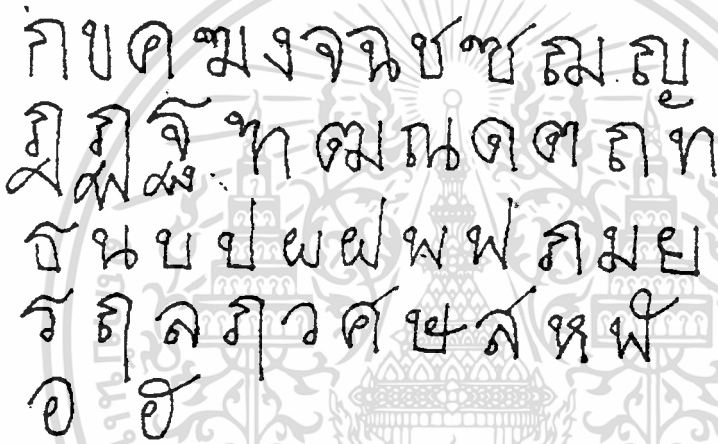 กขคฆงจฉชซฌญ
ฎฏฐฑฒณดตถทั
ธนบปผฝพฟภมย
รฤลฦวศษสหฬ
อฮ